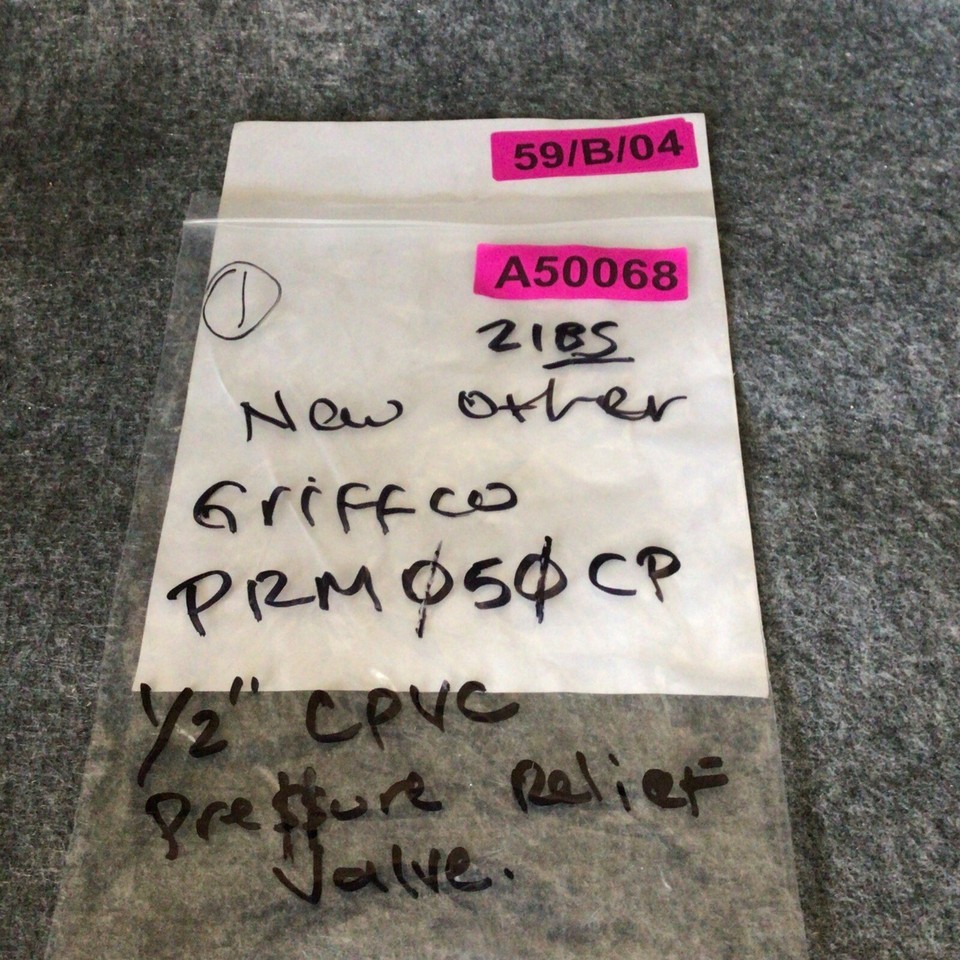 59/B/04
A50068
①
2lBS
New other
Griffco
PRM050CP
1/2" CPVC
Pressure Relief
Valve.